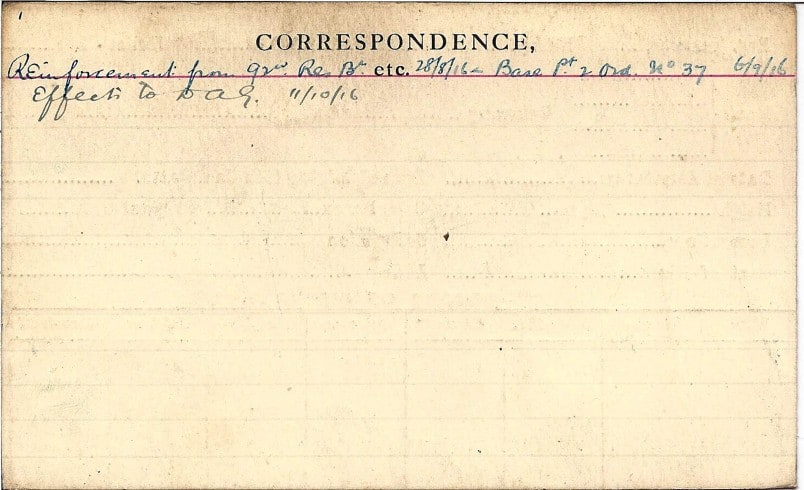 CORRESPONDENCE,
Reinforcement from 92nd Res Bn etc. 28/8/16 - Base Pt 2 Ord. No 37 6/9/16
Effects to DAG. 11/10/16